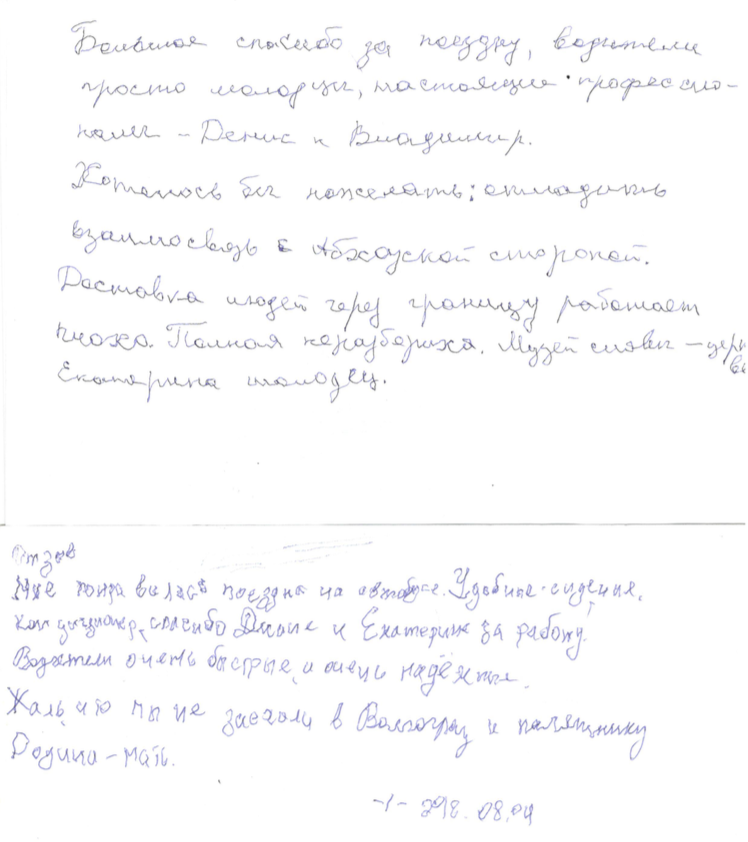 Большое спасибо за поездку, водители
просто молодцы, настоящие профессио-
налы - Денис и Владимир.
Хотелось бы пожелать: отладить
взаимосвязь с Абхазской стороной.
Доставка людей через границу работает
плохо. Полная неразбериха. Музей славы - церк
Екатерина молодец.
Отзыв
Мне понравилась поездка на автобусе. Удобные сидения,
кондиционер, спасибо Диане и Екатерине за работу.
Водители очень быстрые и очень надёжные.
Жаль что мы не заехали в Волгоград к памятнику
Родина-мать.
08.04